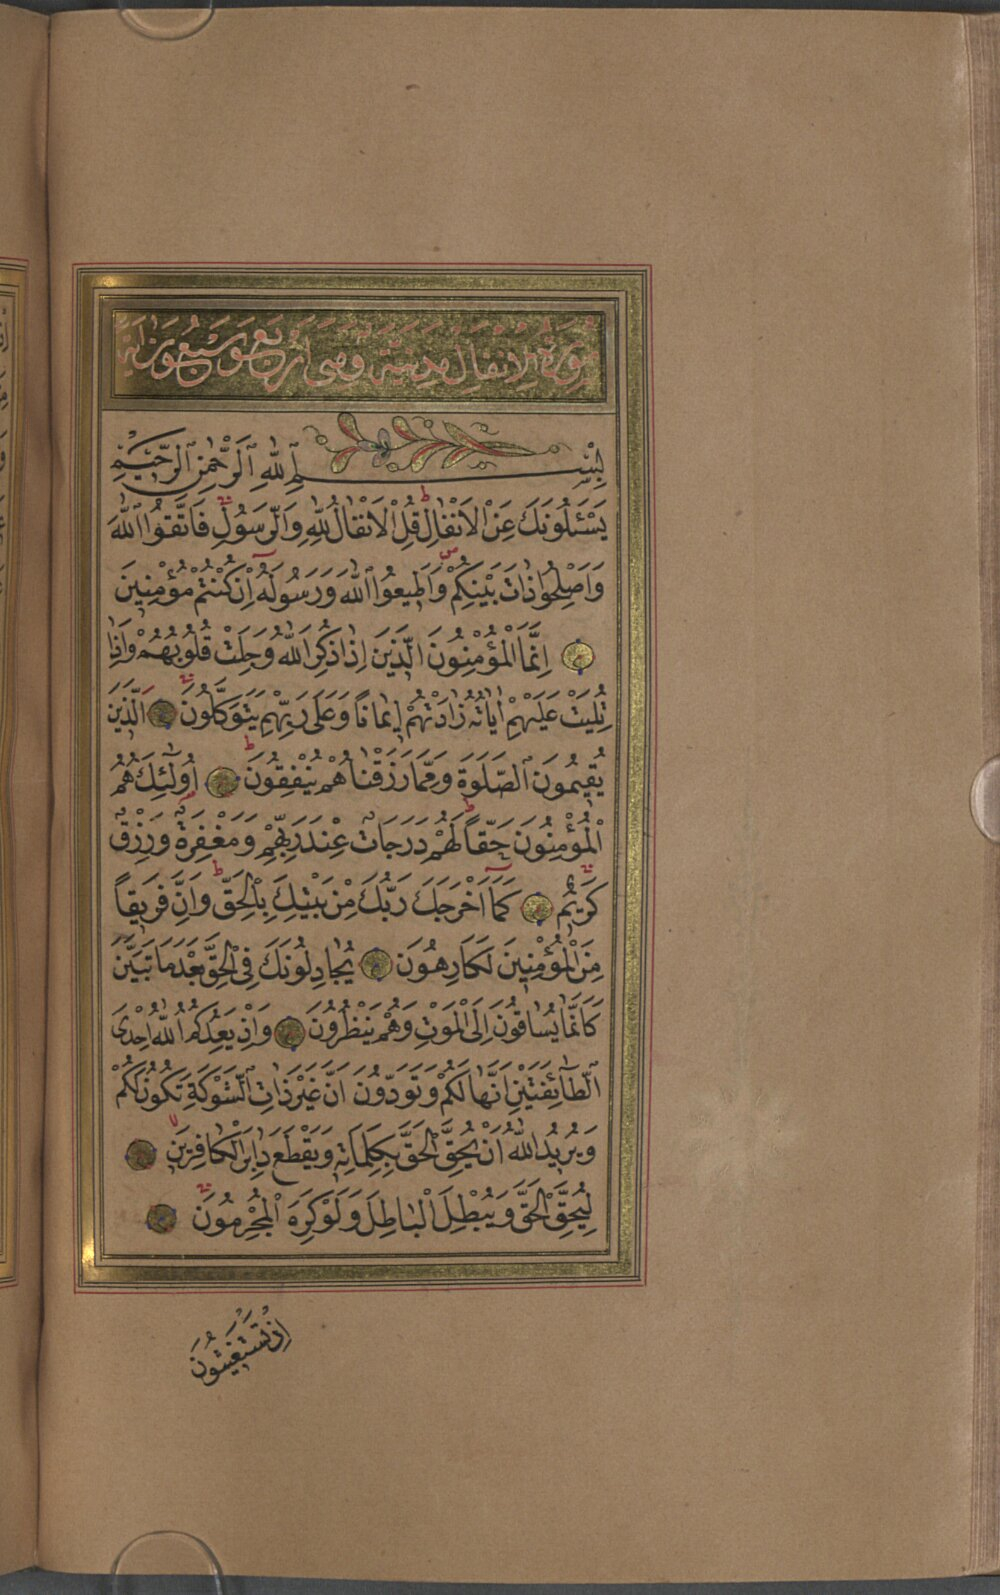 سُورَةُ الْاَنْفَالِ مَدَنِيَّةٌ وَهِىَ اَرْبَعٌ وَسَبْعُونَ اٰيَةً
بِسْمِ ٱللّٰهِ ٱلرَّحْمٰنِ ٱلرَّحِيمِ
يَسْـَٔلُونَكَ عَنِ الْاَنْفَالِ قُلِ الْاَنْفَالُ لِلّٰهِ وَالرَّسُولِ فَاتَّقُوا اللّٰهَ
وَاَصْلِحُوا ذَاتَ بَيْنِكُمْ وَاَطِيعُوا اللّٰهَ وَرَسُولَهُ اِنْ كُنْتُمْ مُؤْمِنِينَ
اِنَّمَا الْمُؤْمِنُونَ الَّذِينَ اِذَا ذُكِرَ اللّٰهُ وَجِلَتْ قُلُوبُهُمْ وَاِذَا
تُلِيَتْ عَلَيْهِمْ اٰيَاتُهُ زَادَتْهُمْ اِيمَانًا وَعَلٰى رَبِّهِمْ يَتَوَكَّلُونَ اَلَّذِينَ
يُقِيمُونَ ٱلصَّلٰوةَ وَمِمَّا رَزَقْنَاهُمْ يُنْفِقُونَ اُولٰٓئِكَ هُمُ
الْمُؤْمِنُونَ حَقًّا لَهُمْ دَرَجَاتٌ عِنْدَ رَبِّهِمْ وَمَغْفِرَةٌ وَرِزْقٌ
كَرِيمٌ كَمَٓا اَخْرَجَكَ رَبُّكَ مِنْ بَيْتِكَ بِالْحَقِّ وَاِنَّ فَرِيقًا
مِنَ الْمُؤْمِنِينَ لَكَارِهُونَ يُجَادِلُونَكَ فِى الْحَقِّ بَعْدَ مَا تَبَيَّنَ
كَاَنَّمَا يُسَاقُونَ اِلَى الْمَوْتِ وَهُمْ يَنْظُرُونَ وَاِذْ يَعِدُكُمُ اللّٰهُ اِحْدَى
ٱلطَّٓائِفَتَيْنِ اَنَّهَا لَكُمْ وَتَوَدُّونَ اَنَّ غَيْرَ ذَاتِ ٱلشَّوْكَةِ تَكُونُ لَكُمْ
وَيُرِيدُ اللّٰهُ اَنْ يُحِقَّ الْحَقَّ بِكَلِمَاتِهِ وَيَقْطَعَ دَابِرَ الْكَافِرِينَ
لِيُحِقَّ الْحَقَّ وَيُبْطِلَ الْبَاطِلَ وَلَوْ كَرِهَ الْمُجْرِمُونَ
اِذْ تَسْتَغِيثُونَ